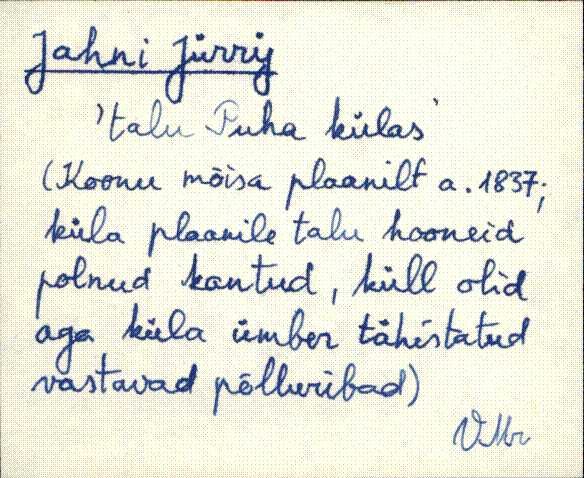 Jahni Jürrÿ
'talu Puha külas'
(Koonu mõisa plaanilt a. 1837;
küla plaanile talu hooneid
polnud kantud, küll olid
aga küla ümber tähistatud
vastavad põlluribad)
VMr